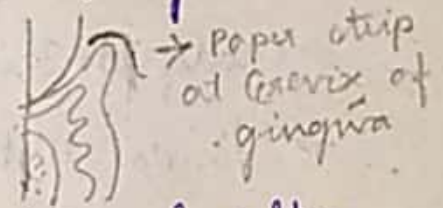 → Paper strip
at Cervix of
gingiva